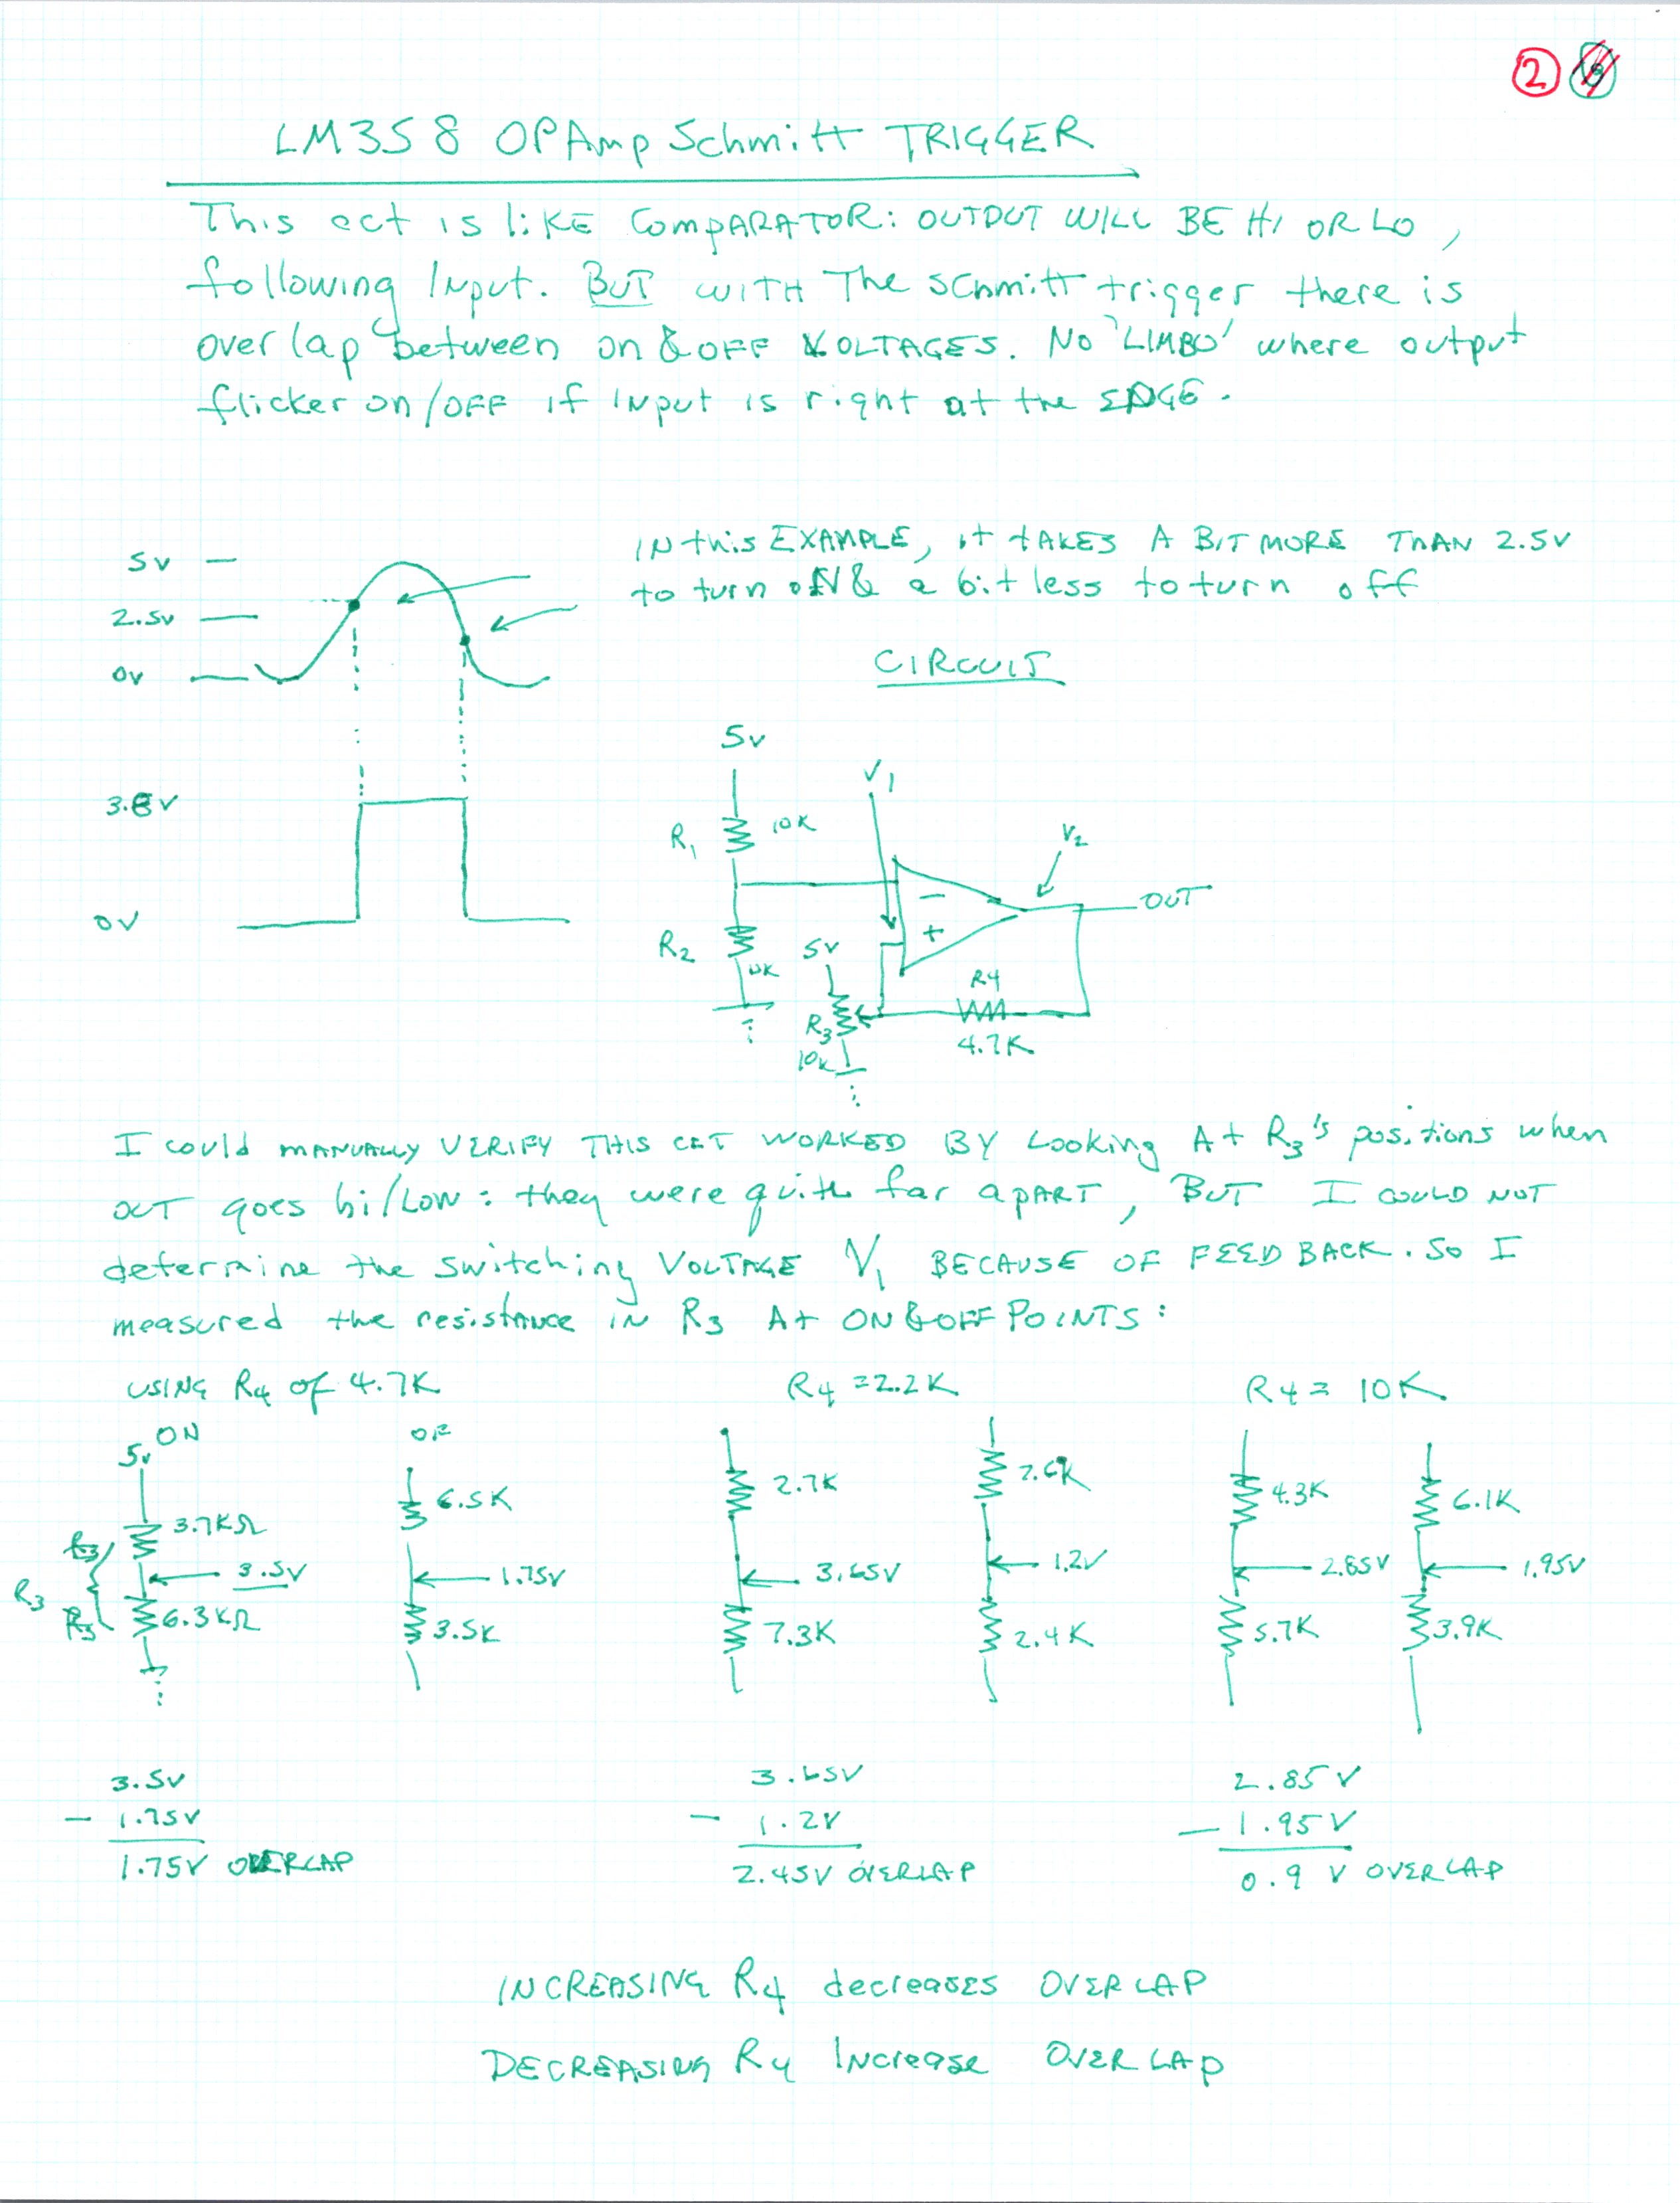 2
LM358 OPAmp Schmitt TRIGGER
This cct is liKE COmpARATOR: OUTPUT WILL BE HI OR LO,
following Input. BUT WITH The schmitt trigger there is
overlap between on & OFF VOLTAGES. No 'LIMBO' where output
flicker on/OFF if INput is right at the EDGE.
5v
2.5v
0v
IN this EXAMPLE, it tAKES A BIT MORE THAN 2.5V
to turn oN & a bit less to turn off
CIRCUIT
3.8V
0V
5v
R1
10K
V1
V2
OUT
R2
10K
5v
R4
4.7K
R3
10K
I could MANUALLY VERIFY THIS CCT WORKED BY Looking At R3's positions when
OUT goes hi/Low: they were quite far apART, BUT I COULD NOT
determine the switching VOLTAGE V1 BECAUSE OF FEEDBACK. So I
measured the resistance IN R3 At ON & OFF POINTS:
USING R4 of 4.7K
R4 = 2.2K
R4 = 10K
5v ON
OF
3.7KΩ
6.5K
2.7K
7.6K
4.3K
6.1K
R3
3.5V
1.75V
3.65V
1.2V
2.85V
1.95V
6.3KΩ
3.5K
7.3K
2.4K
5.7K
3.9K
3.5V
- 1.75V
1.75V OVERLAP
3.65V
- 1.2V
2.45V OVERLAP
2.85V
- 1.95V
0.9 V OVERLAP
INCREASING R4 decreases OVERLAP
DECREASING R4 Increase OVERLAP